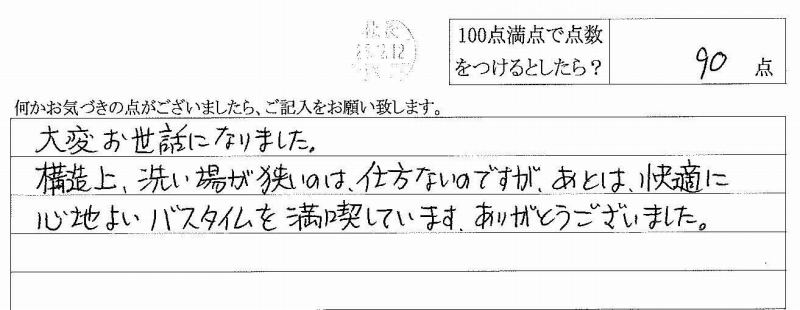 100点満点で点数
をつけるとしたら？
90 点
何かお気づきの点がございましたら、ご記入をお願い致します。
大変お世話になりました。
構造上、洗い場が狭いのは、仕方ないのですが、あとは、快適に
心地よいバスタイムを満喫しています。ありがとうございました。